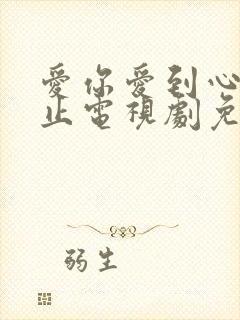 愛你愛到心
止電視劇免
弱生